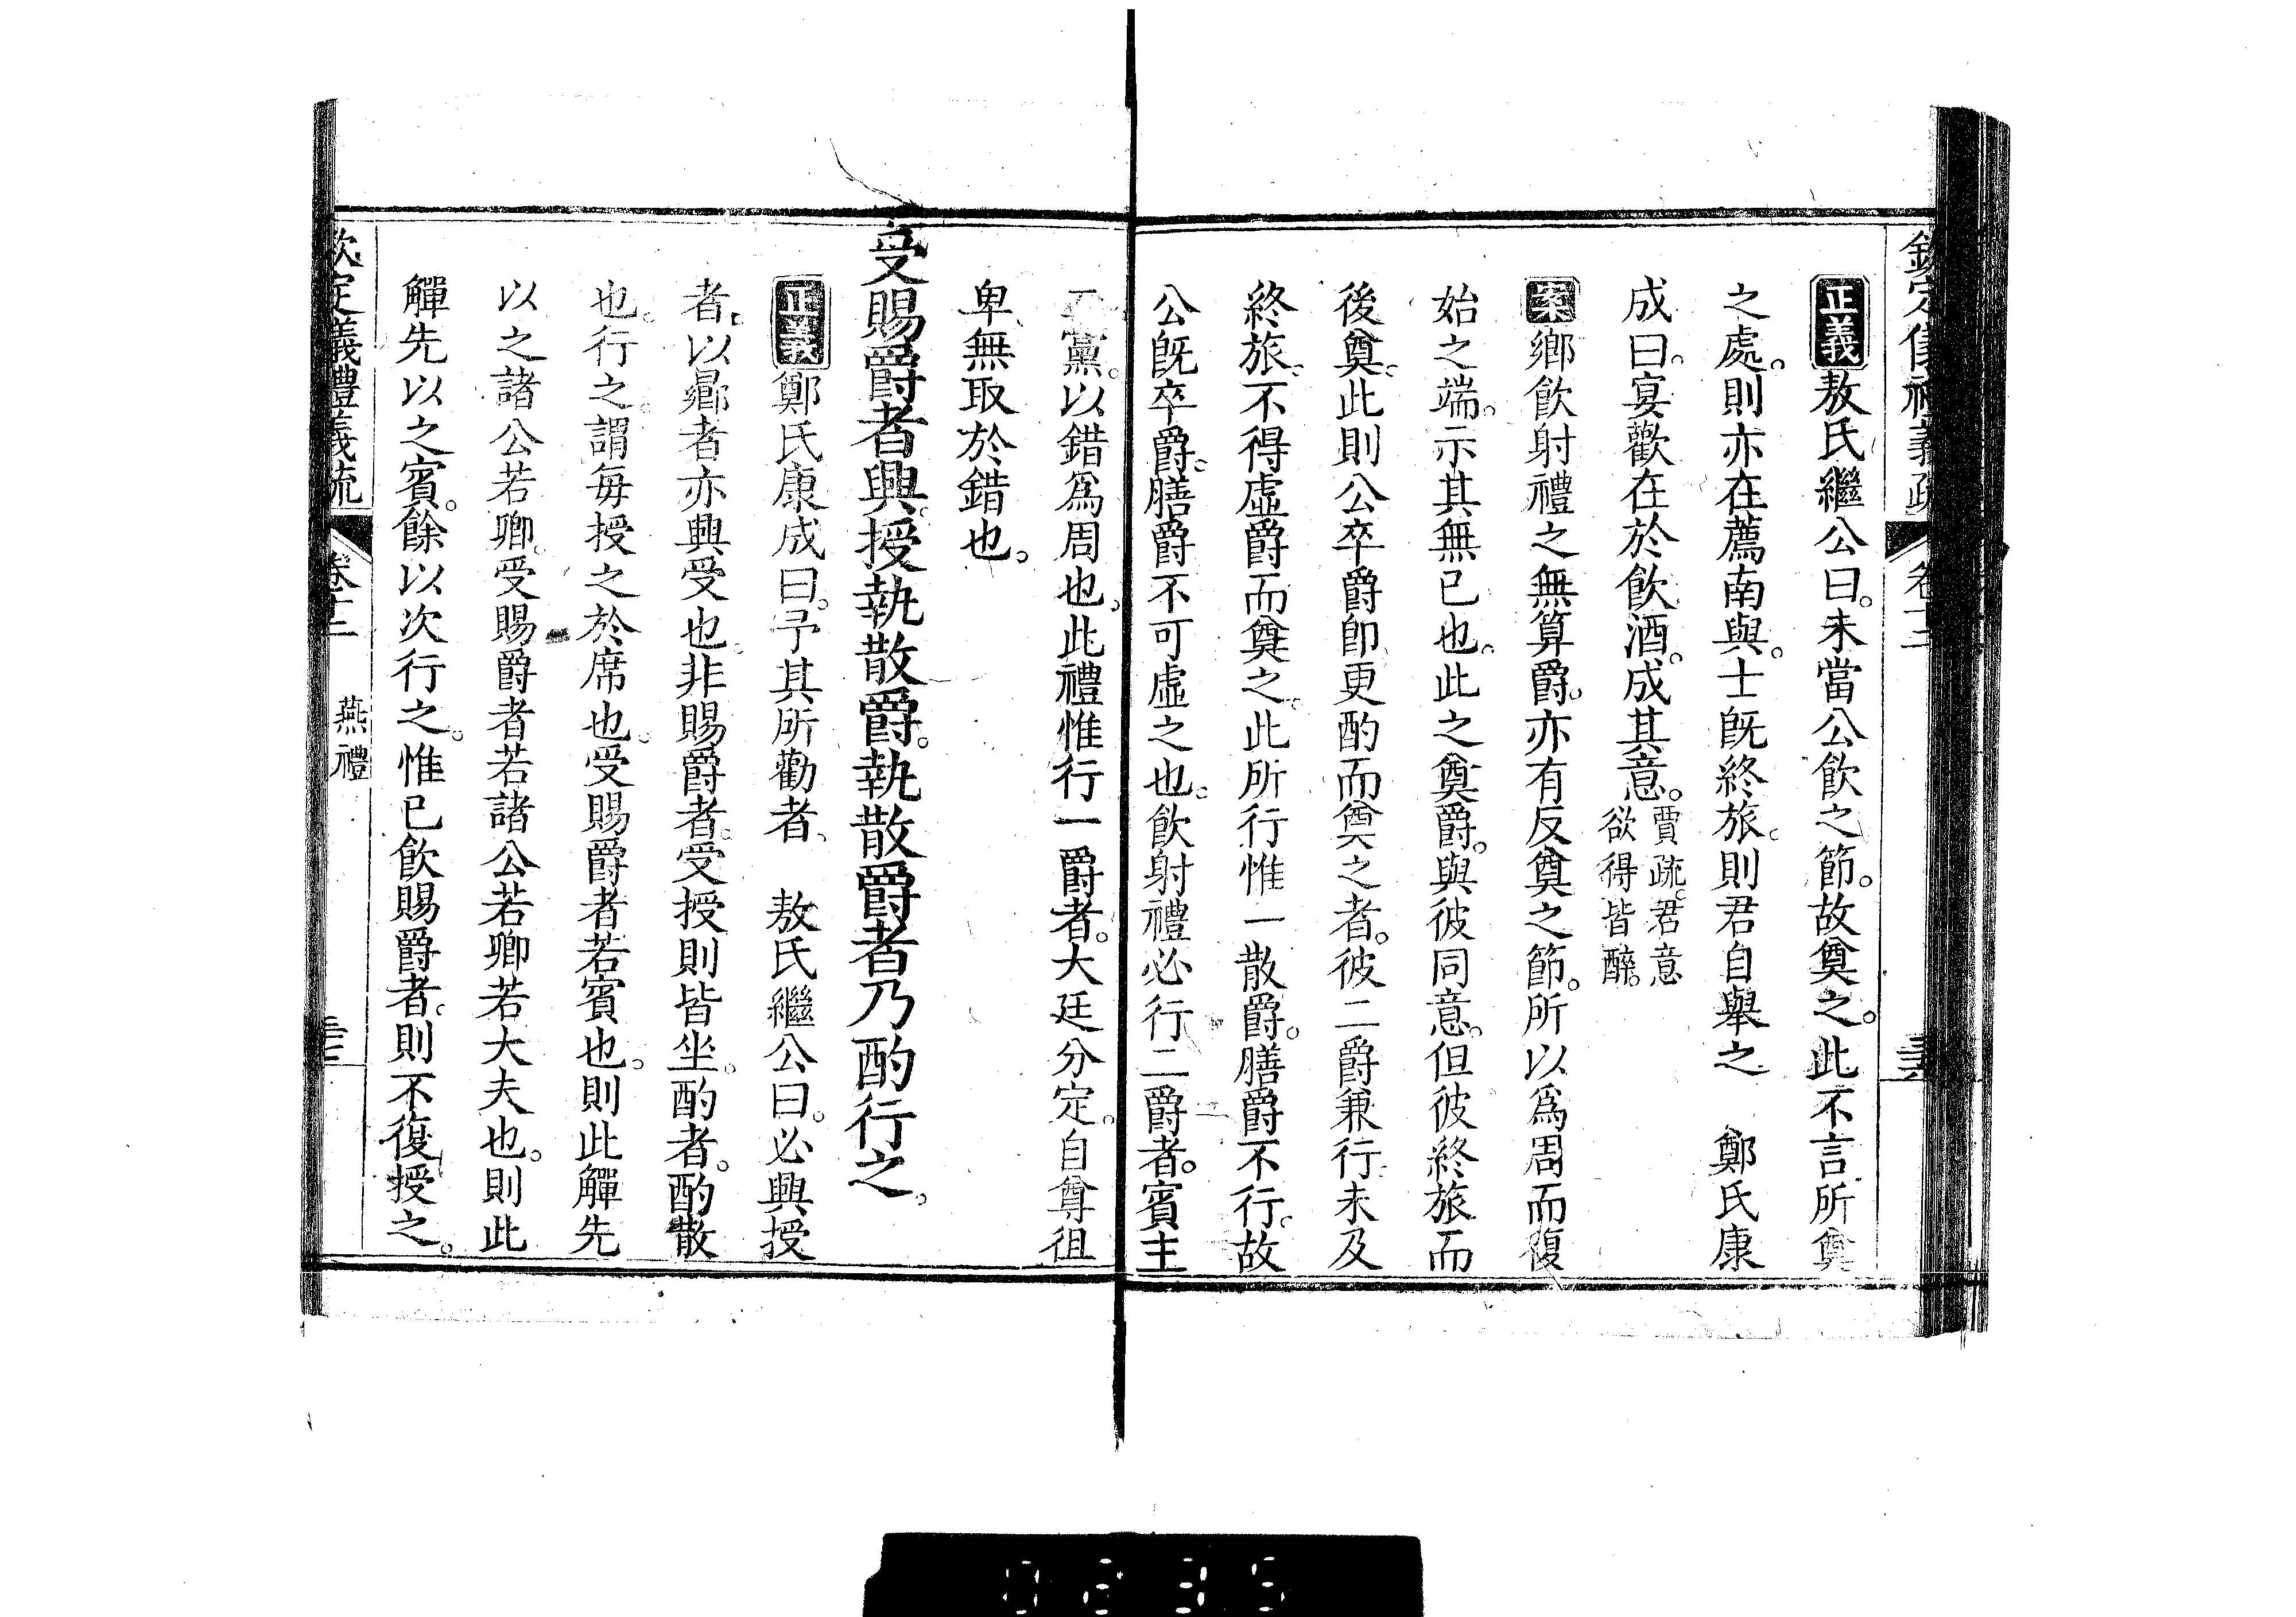 正義敖氏繼公曰。未當公飲之節。故奠之。此不言所奠
之處。則亦在薦南與。士既終旅。則君自舉之　鄭氏康
成曰。宴歡在於飲酒。成其意。賈疏。君意欲得皆醉。
案鄉飲射禮之無算爵。亦有反奠之節。所以爲周而復
始之端。示其無已也。此之奠爵。與彼同意。但彼終旅而
後奠。此則公卒爵卽更酌而奠之者。彼二爵兼行未及
終旅。不得虛爵而奠之。此所行惟一散爵。膳爵不行。故
公既卒爵。膳爵不可虛之也。飲射禮必行二爵者。賓主
二黨。以錯爲周也。此禮惟行一爵者。大廷分定。自尊徂
卑無取於錯也。
受賜爵者興。授執散爵。執散爵者乃酌行之。
正義鄭氏康成曰。予其所勸者、　敖氏繼公曰。必興授
者。以鄉者亦興受也。非賜爵者。受授則皆坐。酌者。酌散
也。行之。謂每授之於席也。受賜爵者若賓也。則此觶先
以之諸公若卿。受賜爵者若諸公若卿若大夫也。則此
觶先以之賓。餘以次行之。惟已飲賜爵者。則不復授之。
欽定儀禮義疏　卷十二　燕禮